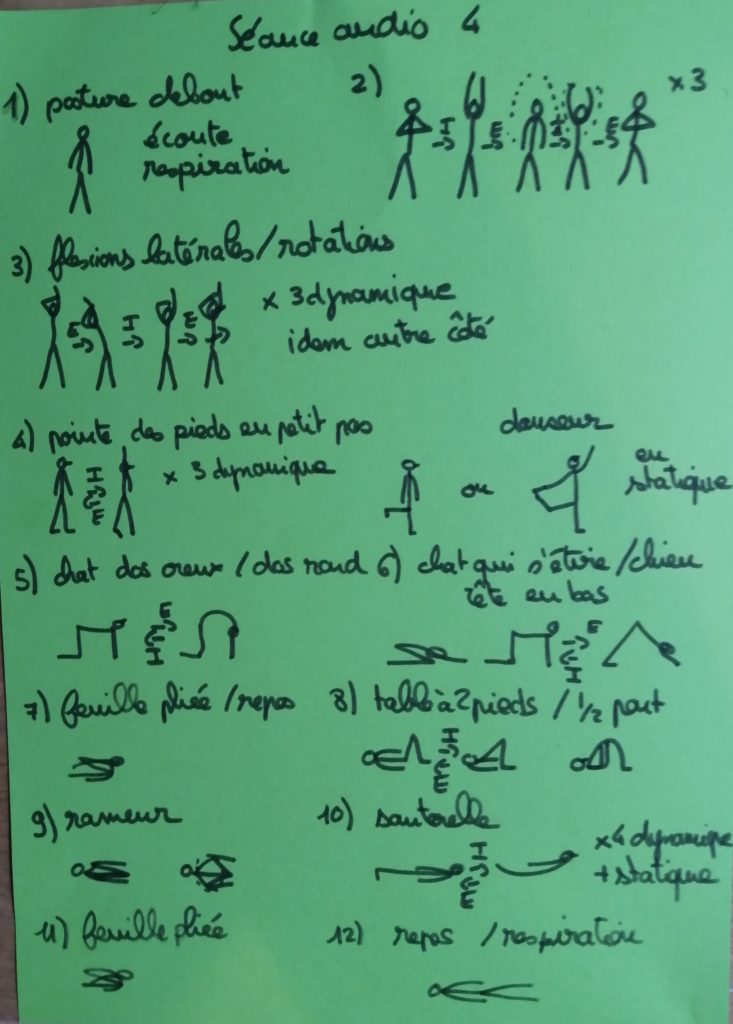 Séance audio 4
1) posture debout
écoute
respiration
2) I E I E x3
3) flexions latérales/rotations
E I E
x 3 dynamique
idem autre côté
4) pointe des pieds en petit pas
I
E
x 3 dynamique
ou
danseur
en
statique
5) chat dos creux / dos rond
E
I
6) chat qui s'étire/chien
tête en bas
E
I
7) feuille pliée /repos
8) table à 2 pieds / 1/2 pont
I
E
9) rameur
10) sauterelle
I
E
x4 dynamique
+ statique
11) feuille pliée
12) repos /respiration